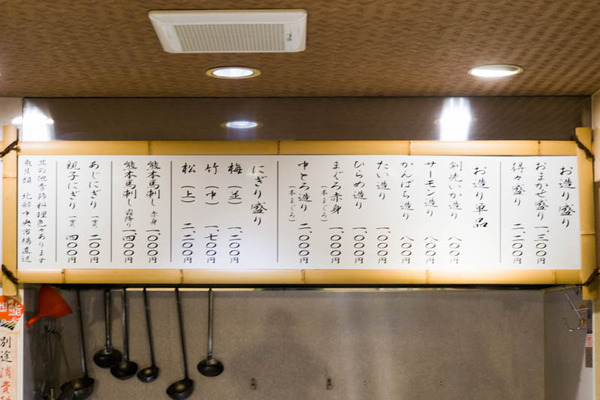 お造り盛り
おまかせ盛り 一、三〇〇円
得々盛り 二、二〇〇円
お造り単品
剣先いか造り 八〇〇円
サーモン造り 八〇〇円
かんぱち造り 八〇〇円
たい造り 一、〇〇〇円
ひらめ造り 一、〇〇〇円
まぐろ赤身（本まぐろ） 一、〇〇〇円
中とろ造り（本まぐろ） 二、〇〇〇円
にぎり盛り
梅（並） 一、二〇〇円
竹（中） 一、七〇〇円
松（上） 二、二〇〇円
熊本馬刺し 赤身 一、〇〇〇円
熊本馬刺し 霜降り 一、四〇〇円
あじにぎり 一貫 二〇〇円
穴子にぎり 一貫 四〇〇円
其の他季節料理色々あります
北部中央市場直送
別途 消費